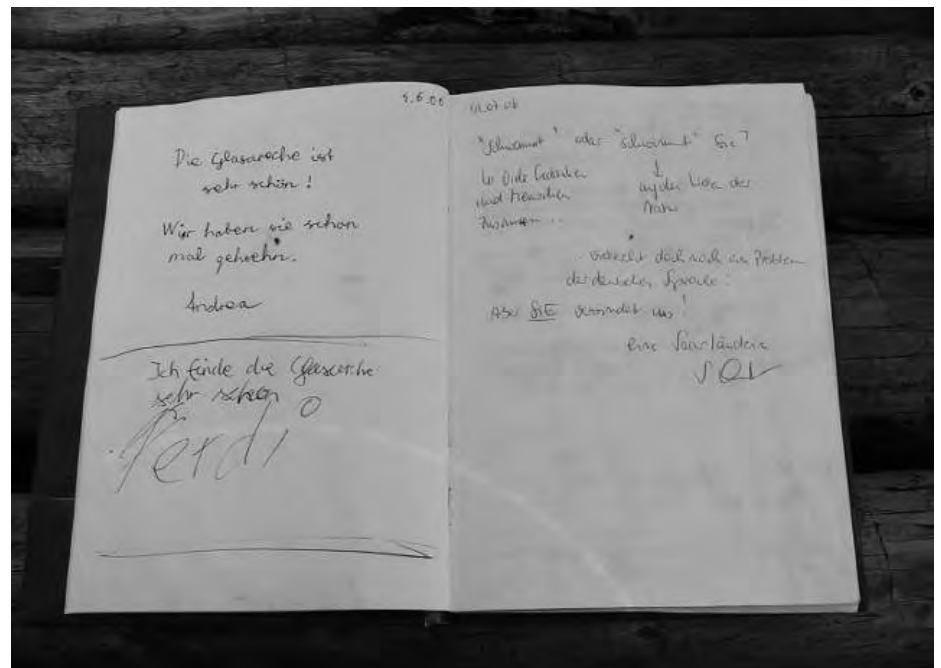 5.6.06
Die Glasarche ist
sehr schön!
Wir haben sie schon
mal gesehn.
Andrea
Ich finde die Glasarche
sehr schön
Ferdi
01.07.06
"Schwimmt" oder "schwimmt" Sie?
viele Gedanken
und Menschen
zusammen ..
auf der Wiese der
Natur
doch noch ein Problem
der deutschen Sprache.
Aber SIE verbindet uns!
eine Saarländerin